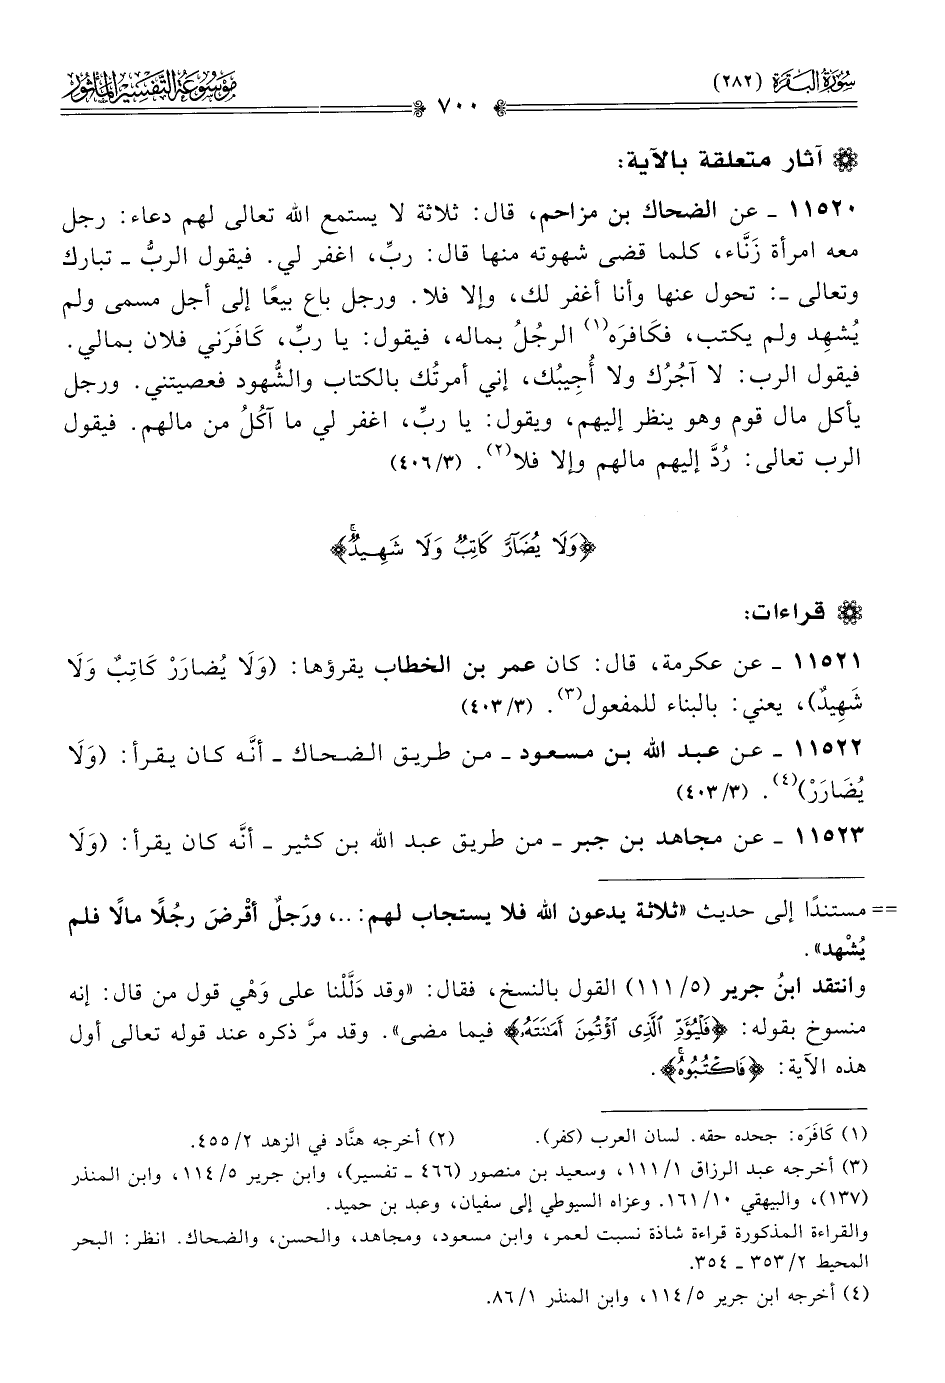 سُورَةُ البَقَرَة (٢٨٢)
٧٠٠
مَوْسُوعَةُ التَّفْسِيرِ المَأْثُورِ
آثار متعلقة بالآية:
١١٥٢٠ ـ عن الضحاك بن مزاحم، قال: ثلاثة لا يستمع الله تعالى لهم دعاء: رجل
معه امرأة زَنَّاء، كلما قضى شهوته منها قال: ربِّ، اغفر لي. فيقول الربُّ ـ تبارك
وتعالى ـ: تحول عنها وأنا أغفر لك، وإلا فلا. ورجل باع بيعًا إلى أجل مسمى ولم
يُشهِد ولم يكتب، فكَافرَه(١) الرجُلُ بماله، فيقول: يا ربِّ، كَافَرَني فلان بمالي.
فيقول الرب: لا آجُرُك ولا أُجِيبُك، إني أمرتُك بالكتاب والشُّهود فعصيتني. ورجل
يأكل مال قوم وهو ينظر إليهم، ويقول: يا ربِّ، اغفر لي ما آكُلُ من مالهم. فيقول
الرب تعالى: رُدَّ إليهم مالهم وإلا فلا(٢). (٤٠٦/٣)
﴿وَلَا يُضَآرَّ كَاتِبٌ وَلَا شَهِيدٌ﴾
قراءات:
١١٥٢١ ـ عن عكرمة، قال: كان عمر بن الخطاب يقرؤها: (وَلَا يُضارَرْ كَاتِبٌ وَلَا
شَهِيدٌ)، يعني: بالبناء للمفعول(٣). (٤٠٣/٣)
١١٥٢٢ ـ عن عبد الله بن مسعود ـ من طريق الضحاك ـ أنَّه كان يقرأ: (وَلَا
يُضَارَرْ)(٤). (٤٠٣/٣)
١١٥٢٣ ـ عن مجاهد بن جبر ـ من طريق عبد الله بن كثير ـ أنَّه كان يقرأ: (وَلَا
== مستندًا إلى حديث «ثلاثة يدعون الله فلا يستجاب لهم: ..، ورَجلٌ أقْرضَ رجُلًا مالًا فلم
يُشْهد».
وانتقد ابنُ جرير (١١١/٥) القول بالنسخ، فقال: «وقد دَلَّلْنا على وَهْي قول من قال: إنه
منسوخ بقوله: ﴿فَلْيُؤَدِّ ٱلَّذِى ٱؤْتُمِنَ أَمَٰنَتَهُۥ﴾ فيما مضى». وقد مرَّ ذكره عند قوله تعالى أول
هذه الآية: ﴿فَٱكْتُبُوهُ﴾.
(١) كَافَرَه: جحده حقه. لسان العرب (كفر). (٢) أخرجه هنَّاد في الزهد ٤٥٥/٢.
(٣) أخرجه عبد الرزاق ١١١/١، وسعيد بن منصور (٤٦٦ ـ تفسير)، وابن جرير ١١٤/٥، وابن المنذر
(١٣٧)، والبيهقي ١٦١/١٠. وعزاه السيوطي إلى سفيان، وعبد بن حميد.
والقراءة المذكورة قراءة شاذة نسبت لعمر، وابن مسعود، ومجاهد، والحسن، والضحاك. انظر: البحر
المحيط ٣٥٣/٢ ـ ٣٥٤.
(٤) أخرجه ابن جرير ١١٤/٥، وابن المنذر ٨٦/١.